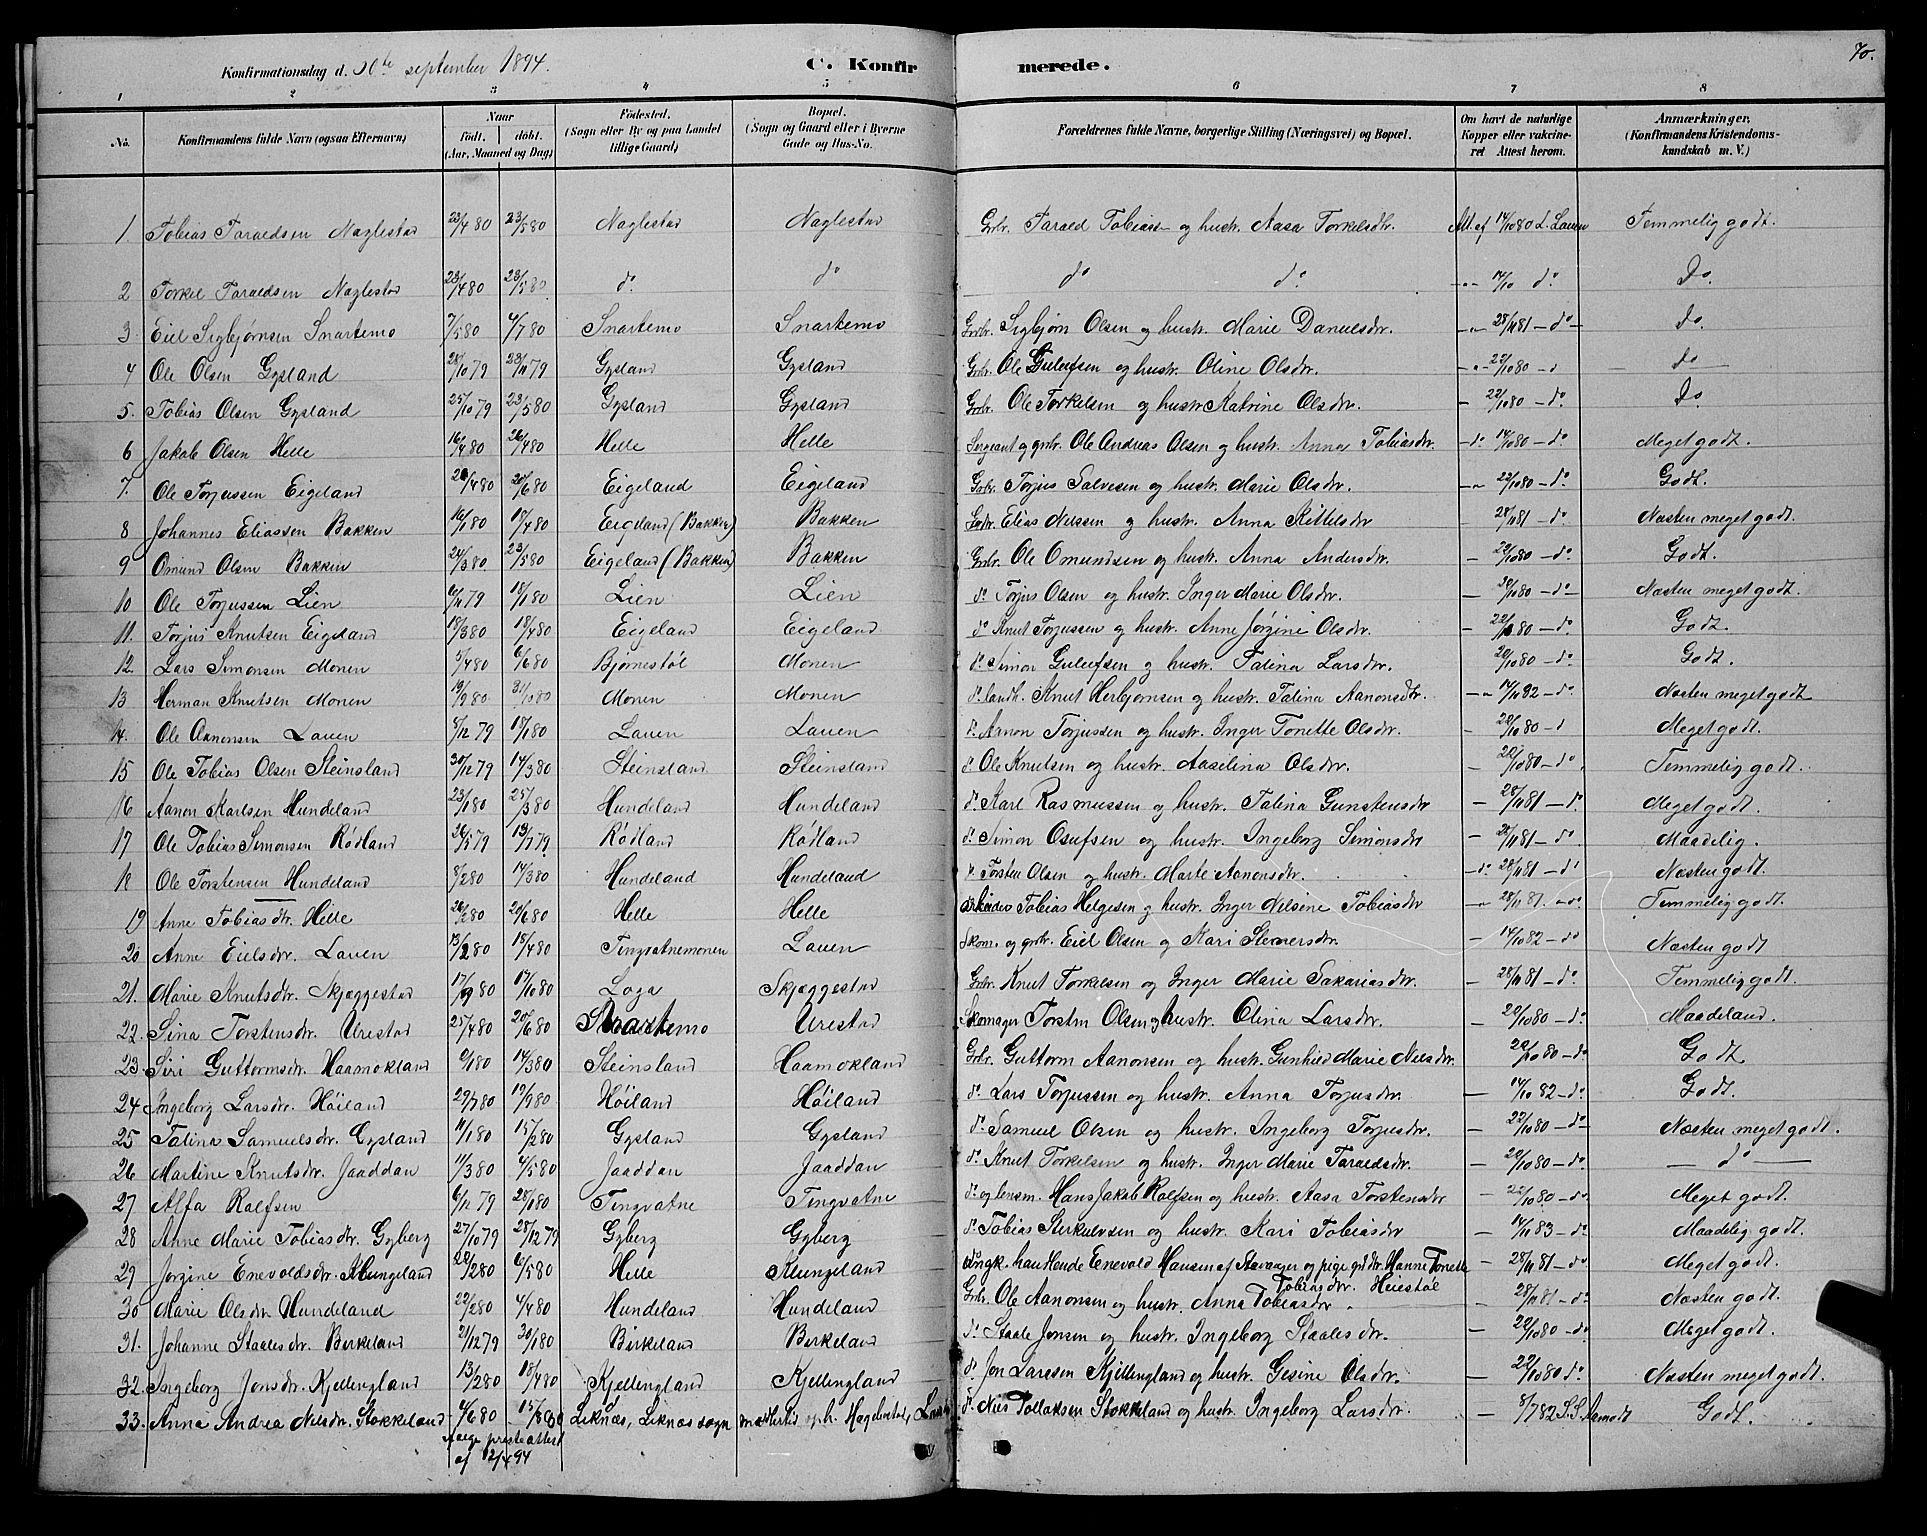 70.
Konfirmationsdag d. 30te september 1894. C. Konfirmerede.
1 2 3 4 5 6 7 8
No. Konfirmandens fulde Navn (ogsaa Efternavn) Naar født. døbt. (Aar, Maaned og Dag) Födested. (Sogn eller By og paa Landet tillige Gaard) Bopæl. (Sogn og Gaard eller i Byerne Gade og Hus-No. Forældrenes fulde Navne, borgerlige Stilling (Næringsvei) og Bopæl. Om havt de naturlige Kopper eller vakcineret Attest herom. Anmærkninger. (Konfirmandens Kristendomskundskab m. V.)
1. Tobias Taraldsen Naglestad 23/4 80 23/5 80 Naglestad Naglestad Grbr. Tarald Tobiassen og hustr. Aasa Torkelsdtr. Att. af 14/10 80 L. Lauen Temmelig godt.
2 Torkel Taraldsen Naglestad 23/4 80 23/5 80 do do do do 14/10 do do.
3. Eiel Sigbjørnsen Snartemo 7/5 80 4/7 80 Snartemo Snartemo Grbr. Sigbjørn Olsen og hustr. Marie Danielsdr. 28/11 81 - do do
4 Ole Olsen Gysland 28/10 79 23/11 79 Gysland Gysland Grbr. Ole Guleufsen og hustr. Oline Olsdtr. 22/10 80 - d do
5. Tobias Olsen Gysland 25/10 79 23/5 80 Gysland Gysland Grbr. Ole Torkelsen og hustr Katrine Olsdr. 22/10 80 - do do
6 Jakob Olsen Helle 16/4 80 26/4 80 Helle Helle Sergeant og grbr. Ole Andreas Olsen og hustr. Anna Tobiasdr. do 14/10 80 - do Meget godt.
7. Ole Torjussen Eigeland /4 80 20/6 80 Eigeland Eigeland Grbr. Torjus Salvesen og hustr. Marie Olsdr. 22/10 80 - do Godt.
8 Johannes Eliassen Bakken 16/1 80 18/4 80 Eigeland (Bakken) Bakken Grbr. Elias Nilssen og hustr. Anna Kittelsdr 28/11 81 - do Næsten meget godt.
9 Omund Olsen Bakken 24/3 80. 23/5 80 Eigeland (Bakken) Bakken Grbr. Ole Omundsen og hustr. Anna Andersdr. 22/10 80 - do Godt.
10 Ole Torjussen Lien 6/11 79 18/1 80 Lien Lien do Torjus Olsen og hustr. Inger Marie Olsdr. 22/10 80 - do Næsten meget godt.
11. Torjus Knutsen Eigeland 18/3 80 18/4 80 Eigeland Eigeland do Knut Torjussen og hustr. Anne Jørgine Olsdr. 22/10 80 - do Godt.
12. Lars Simonsen Monen 5/4 80 6/6 80 Bjørnestøl Monen do Simon Guleufsen og hustr. Talina Larsdr. 22/10 80 - do Godt.
13 Herman Knutsen Monen 19/9 80 31/10 80 Monen Monen do landh. Knut Herbjørnsen og hustr. Talina Aanonsdtr. 14/10 82 - do Næsten meget godt
14. Ole Aanonsen Lauen 8/12 79 18/1 80 Lauen Lauen do Aanon Torjussen og hustr. Inger Tonette Olsdr. 22/10 80 - d Meget godt.
15 Ole Tobias Olsen Steinsland 30/12 79 14/3 80 Steinsland Steinsland do Ole Knutsen og hustr. Aaselina Olsdr. 22/10 80 - do. Temmelig godt.
16 Aanon Karlsen Hundeland 23/1 80 25/3 80 Hundeland Hundeland do Karl Rasmussen og hustr. Talina Gunstensdr 28/11 81 - do Meget godt.
17 Ole Tobias Simonsen Rødland 26/5 79 13/7 79 Rødland Rødland do Simon Osufsen og hustr. Ingeborg Simonsdr 28/11 81 - do Maadelig.
18 Ole Torstensen Hundeland 8/2 80 14/3 80 Hundeland Hundeland do Torsten Olsen og hustr. Marte Aanonsdtr. do 28/11 81 - do Næsten godt.
19 Anne Tobiasdtr. Helle 26/2 80 20/6 80 Helle Helle Tobias Helgesen og hustr. Inger Nilsine Tobiasdr 28/11 81. do. Temmelig godt.
20 Anne Eielsdr. Lauen 13/2 80 18/4 80 Tingvatnemonen Lauen Skom. og grbr. Eiel Olsen og Kari Stenersdr. 14/10 82 - do Næsten godt
21. Marie Knutsdr. Skjæggestad 17/9 80 17/10 80 Loga Skjæggestad Grbr. Knut Torkelsen og Inger Marie Sakariasdr. 28/11 81 - do Temmelig godt.
22. Sina Torstensdr. Urestad 25/4 80 20/6 80 Snartemo Urestad Skomager Torsten Olsen og hustr. Olina Larsdr. 22/10 80 - do Maadeland.
23. Siri Guttormsdr. Haamokland 9/1 80 14/3 80 Steinsland Haamokland Grbr. Guttorm Aanonsen og hustr. Gunhild Marie Nilsdr. 22/10 80 - do Godt
24 Ingeborg Larsdr. Høiland 29/7 80 19/9 80 Høiland Høiland do Lars Torjussen og hustr. Anna Torjusdr. 14/10 82 - do Godt.
25 Talina Samuelsdr. Gysland 11/1 80 15/2 80 Gysland Gysland do Samuel Olsen og hustr. Ingeborg Torjusdr. 22/10 80 - do Næsten meget godt.
26 Martine Knutsdr. Jaaddan 11/3 80 4/5 80 Jaaddan Jaaddan do Knut Torkelsen og hustr. Inger Marie Taraldsdr. 22/10 80 - do do
27 Alfa Ralfsen 6/12 79 28/1 80 Tingvatne Tingvatne do og lensm. Hans Jakob Ralfsen og hustr. Aasa Torstensdr 22/10 80. - do Meget godt.
28 Anne Marie Tobiasdtr. Gyberg 27/10 79 28/12 79 Gyberg Gyberg do Tobias Sterkulvsen og hustr. Kari Tobiasdr 14/11 83 - do Maadelig godt.
29 Jørgine Enevoldsdr. Klungeland 28/2 80 6/5 80 Helle Klungeland Ungk. handlende Enevold Hansen af Stavanger og pige Hanne Tonette Tobiasdr. Heiestøl 28/11 81 - do Meget godt.
30 Marie Olsdr Hundeland 22/2 80 4/4 80 Hundeland Hundeland Grbr. Ole Aanonsen og hustr. Anna Tobiasdr. 28/11 81 - do Næsten godt.
31. Johanne Staalesdr. Birkeland 21/12 79 30/1 80 Birkeland Birkeland do Staale Jonsen og hustr. Ingeborg Staalesdr. 22/10 80 - do Meget godt.
32. Ingeborg Jonsdr. Kjellingland 13/2 80 18/4 80 Kjellingland Kjellingland do Jon Larssen Kjellingland og hustr. Gesine Olsdr. 22/10 80 do Næsten meget godt.
33. Anna Andrea Nilsdr. Stokkeland 4/6 80 15/8 80 Liknæs, Liknæs sogn Hægebostad, do Nils Tollaksen Stokkeland og hustr. Ingeborg Larsdr. 8/7 82 S. S. Aamodt Godt.
ifølge presteattest
af 12/4 94